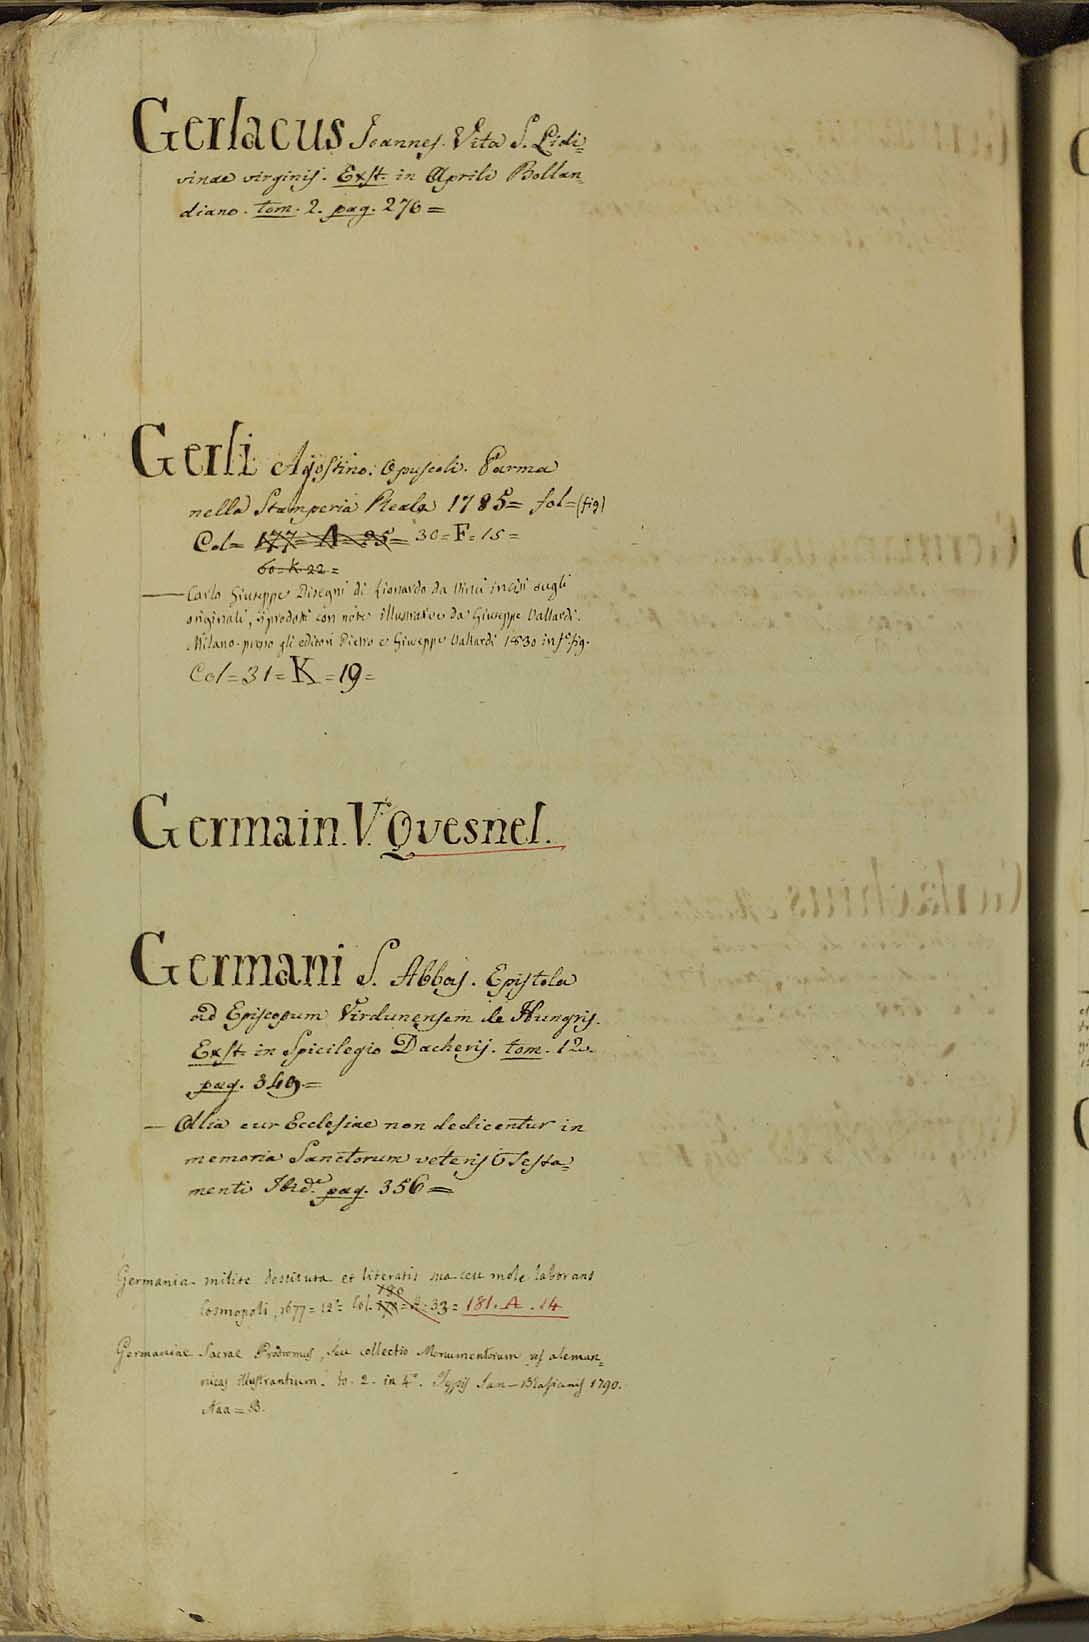 Gerlacus Joannes. Vita S. Lidi=
vinae virginis. Exst. in Aprili Bollan=
diano. tom. 2. pag. 276=
Gerli Agostino. Opuscoli. Parma
nella Stamperia Reale 1785= fol=(fig)
Col= 177= A= 25= 30= F= 15=
60= K 22=
— Carlo Giuseppe Disegni di Lionardo da Vinci incisi sugli
originali, riprodotti con note illustrative da Giuseppe Vallardi.
Milano presso gli editori Pietro e Giuseppe Vallardi 1830 in fº. fig.
Col= 31= K= 19=
Germain. V. Quesnel.
Germani S. Abbas. Epistola
ad Episcopum Virdunensem de Hungris.
Exst. in Spicilegio Dacherij. tom. 12.
pag. 349.=
— Alia cur Ecclesiae non dedicentur in
memoria Sanctorum veteris Testa=
menti Ibid. pag. 356=
Germania milite destituta et literatis sua ceu mole laborans
180
Cosmopoli, 1677= 12º= Col. A= 33= 181. A. 14
Germaniae Sacrae Prodromus, seu collectio Monumentorum res aleman=
nicas illustrantium. to. 2. in 4º. Typis San-Blasianis 1790.
Naa= B.